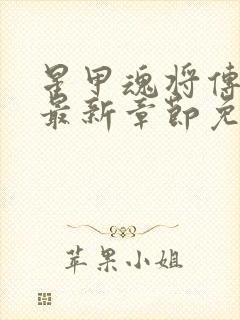 星甲魂将傳
最新章節免
苹果小姐